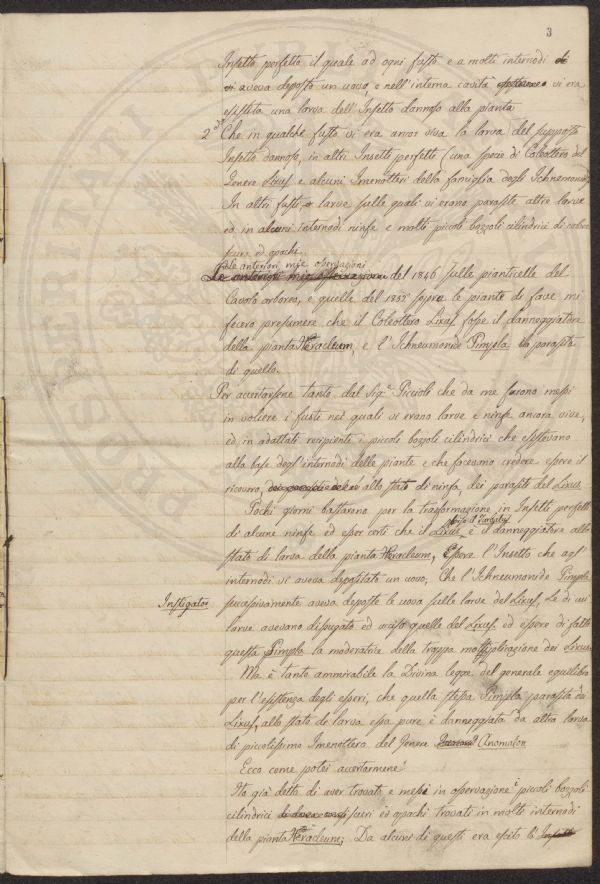 3
Insetto perfetto il quale ad ogni fusto e a molti internodi di
vi aveva deposto un uovo, e nell'interna cavità vi era
esistita una larva dell'Insetto dannoso alla pianta
2° Che in qualche fusto vi era ancor viva la larva del supposto
Insetto dannoso, in altri Insetti perfetti (una specie di Coleottero del
Genere Lixus e alcuni Imenotteri della famiglia degli Ichneumonidi
In altri fusti larve sulle quali vi erano parasite altre larve
ed in alcuni internodi ninfe e molti piccoli bozzoli cilindrici di colore
scuro ed opachi.
Le anteriori mie osservazioni
Le anteriori mie osservazioni del 1846 sulle pianticelle del
Cavolo arboreo, e quelle del 1852 sopra le piante di fave mi
fecero presumere che il Coleottero Lixus fosse il danneggiatore
della pianta Heracleum, e l'Ichneumonide Pimpla la parasita
di quello.
Per accertarsene tanto dal Sig.r Piccioli che da me furono messi
in voliere i fusti nei quali vi erano larve e ninfe ancora vive,
ed in adattati recipienti i piccoli bozzoli cilindrici che esistevano
alla base degl'internodi delle piante e che facevano credere essere il
ricovero, allo stato di ninfa, dei parasiti del Lixus.
Pochi giorni bastarono per la trasformazione in Insetti perfetti
di alcune ninfe ed esser certi che il Lixus, è il danneggiatore allo
stato di larva della pianta Heracleum, Essere l'Insetto che agl'
internodi vi aveva depositato un uovo, Che l'Ichneumonide Pimpla
Instigator
successivamente aveva deposte le uova sulle larve del Lixus, Le di cui
larve avevano disugato ed ucciso quelle del Lixus, ed essere di fatto
questa Pimpla la moderatrice della troppa moltiplicazione dei Lixus
Ma è tanto ammirabile la Divina legge del generale equilibrio
per l'esistenza degli esseri, che quella stessa Pimpla parasita dei
Lixus, allo stato di larva essa pure è danneggiata da altra larva
di piccolissimo Imenottero del Genere Anomalon
Ecco come potei accertarmene!
Ho già detto di aver trovato e messi in osservazione i piccoli bozzoli
cilindrici scuri ed opachi trovati in molti internodi
della pianta Heracleum; Da alcuni di questi era escito lo